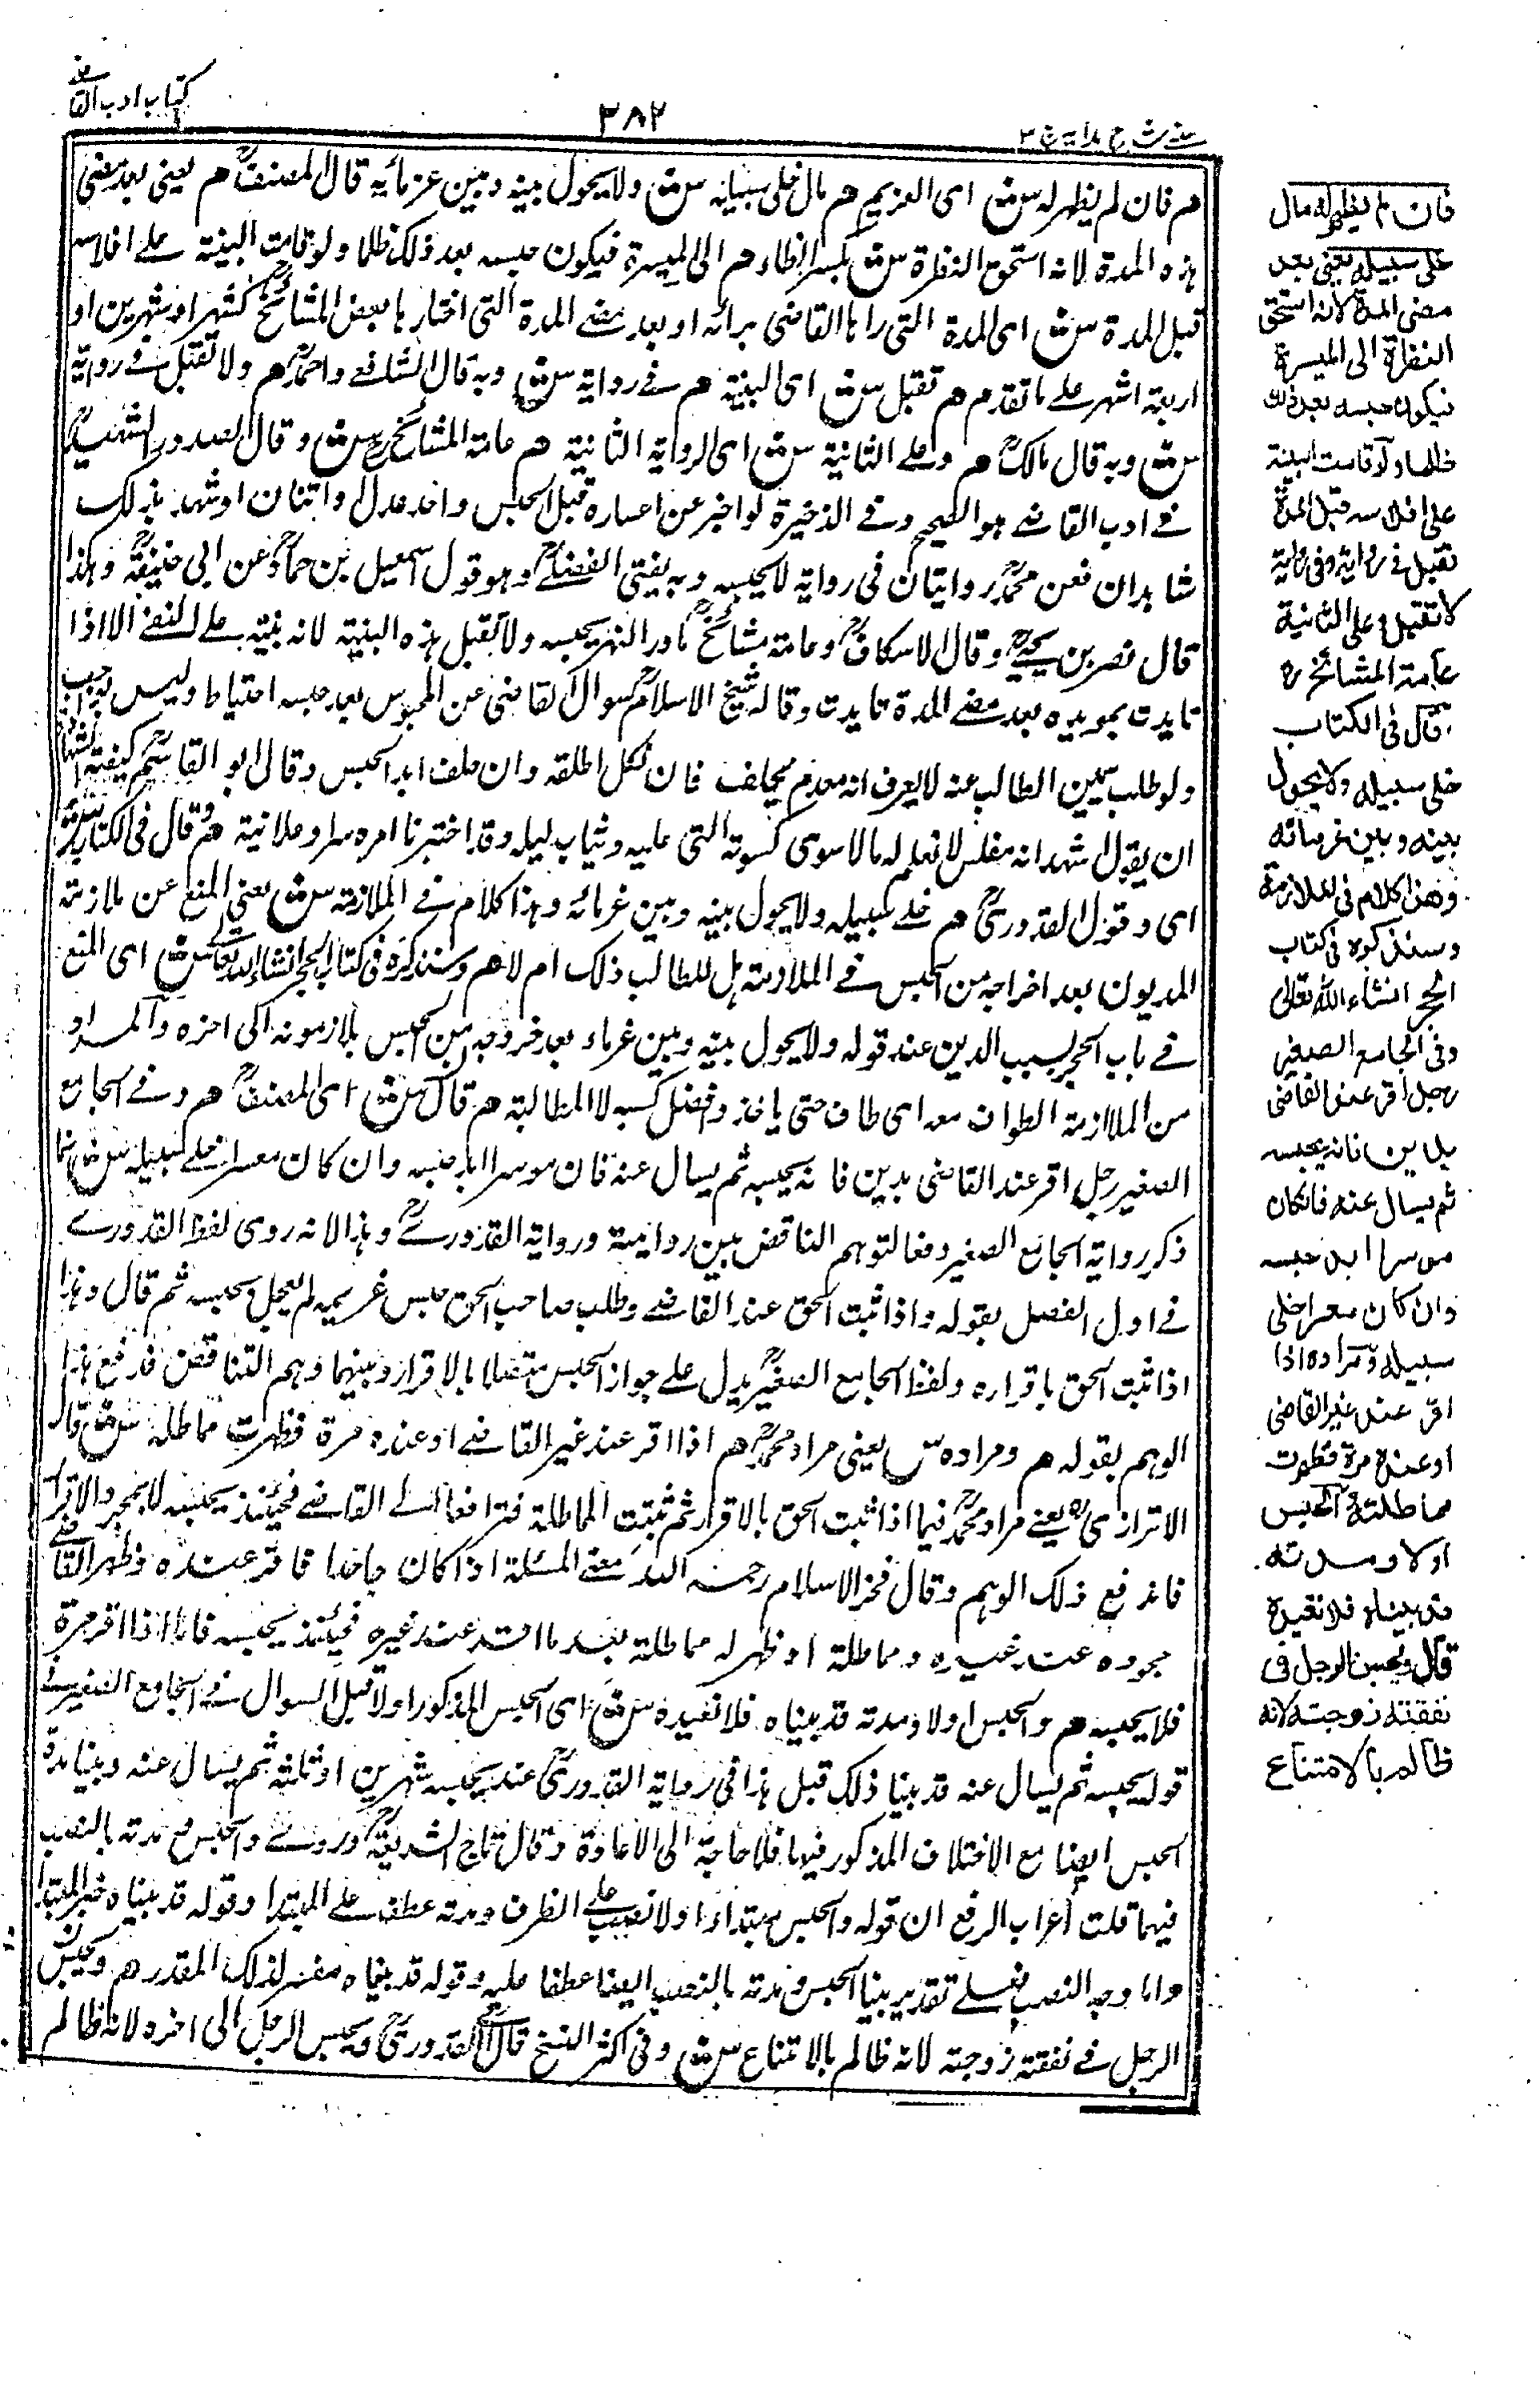 كتاب ادب القاضے
٣٨٢
عینے شرح ہدایہ ج ٣
هم فان لم يظهر له س ش اى الغريم هم مال خلى سبيله س ش ولا يحول بينه وبين غرمائه قال المصنفؒ هم يعنى بعد مضى
هذه المدة لانه استحق النظرة س ش بكسر الظاء هم الى الميسرة فيكون حبسه بعد ذلك ظلما ولو قامت البينة على افلاسه
قبل المدة س ش اى المدة التى راها القاضى برائه او بعد مضے المدة التى اختارها بعض المشائخؒ كشهر او شهرين او
اربعة اشهر على ما تقدم هم تقبل س ش اى البينة هم فے رواية س ش وبه قال الشافعے واحمدؒ هم ولا تقبل فے رواية
س ش وبه قال مالكؒ هم وعلے الثانية س ش اى الرواية الثانية هم عامة المشائخؒ س ش وقال الصدور الشهيدؒ
فے ادب القاضے هو الصحيح وفے الذخيرة لو اخبر عن اعساره قبل الحبس واحد عدل او اثنان او شهد بذلك
شاهدان فعن محمدؒ روايتان فى رواية لا يحبسه وبه يفتى الفضلےؒ وهو قول اسمعيل بن حمادؒ عن ابى حنيفةؒ وهكذا
قال نصر بن يحيےؒ وقال الاسكافؒ وعامة مشائخؒ ماوراء النهر يحبسه ولا تقبل هذه البينة لانه بينة على النفے الا اذا
تايدت بمويده بعد مضے المدة تايدت وقال شيخ الاسلامؒ سوال القاضى عن المحبوس بعد حبسه احتياط وليس بواجب
ولو طلب يمين الطالب عنه لا يعرف انه معدم يحلف فان نكل اطلقه وان حلف ابد الحبس وقال ابو القاسمؒ كيفية الشهادة
ان يقول اشهد انه مفلس لا نعلم له مالا سوى كسوته التى عليه وثياب ليله وقد اختبرنا امره سرا وعلانية هم وقال فى الكتاب س ش
اى وقول القدورىؒ هم خلے سبيله ولا يحول بينه وبين غرمائه وهذا كلام فے الملازمة س ش يعنى المنع عن ملازمته
المديون بعد اخراجه من الحبس فے الملازمة هل للطالب ذلك ام لا هم وسنذكره فى كتاب الحجر انشاء الله تعالى س ش اى المنع
فے باب الحجر بسبب الدين عند قوله ولا يحول بينه وبين غرماء بعد خروجه من الحبس يلازمونه الى اخره والمراد
من الملازمة الطواف معه اى طاف حتى ياخذ وفضل كسبه لا المطالبة هم قال س ش اى المصنفؒ هم وفے الجامع
الصغير رجل اقر عند القاضى بدين فانه يحبسه ثم يسال عنه فان موسرا ابد حبسه وان كان معسرا خلے سبيله س ش انما
ذكر رواية الجامع الصغير دفعا لتوهم الناقض بين روايته ورواية القدورےؒ وهذا لانه روى لفظ القدورے
فے اول الفصل بقوله واذا ثبت الحق عند القاضے وطلب صاحب الحق حبس غريمه لم يعجل بحبسه ثم قال وهذا
اذا ثبت الحق باقراره ولفظ الجامع الصغيرؒ يدل على جواز الحبس متصلا بالاقرار وبينهما وهم التناقض فدفع هذا
الوهم بقوله هم ومراده س يعنى مراد محمدؒ هم اذا اقر عند غير القاضے او عنده مرة فظهرت مماطلة س ش قال
الاترازى يعنے مراد محمدؒ فيما اذا ثبت الحق بالاقرار ثم ثبتت المماطلة فترافعا الى القاضے فحينئذ يحبسه لا بمجرد الاقرار
فاندفع ذلك الوهم وقال فخر الاسلام رحمه الله معنے المسئلة اذا كان جاحدا فاقر عنده وظهر القاضے
جحوده عند غيره ومماطلة او ظهر له مماطلة بعد ما اقتد عند غيره فحينئذ يحبسه فاما اذا اقر مرة
فلا يحبسه هم والحبس اولا ومدته قد بيناه فلا نعيده س ش اى الحبس المذكور اولا قبل السوال فے الجامع الصغير فے
قوله يحبسه ثم يسال عنه قد بينا ذلك قبل هذا فى رواية القدورىؒ عند يحبسه شهرين او ثلثة ثم يسال عنه وبينا مدة
الحبس ايضا مع الاختلاف المذكور فيها فلا حاجة الى الاعادة وقال تاج الشريعةؒ وروے والحبس ومدته بالنصب
فيهما قلت اعراب الرفع ان قوله والحبس مبتداء اولا نصب على الظرف ومدته عطف على المبتدا وقوله قد بيناه خبر المبتدا
واما وجه النصب فعلے تقدير بينا الحبس ومدته بالنصب ايضا عطفا عليه وقوله قد بيناه مفسر لذلك المقدر هم ويحبس
الرجل فے نفقة زوجته لانه ظالم بالامتناع س ش وفى اكثر النسخ قال اى القدورىؒ ويحبس الرجل الى اخره لانه ظالم
فان لم يظهر له مال
خلى سبيله يعنى بعد
مضى المدة لانه استحق
النظرة الى الميسرة
فيكون حبسه بعد ذلك
ظلما ولو قامت البينة
على افلاسه قبل المدة
تقبل فى رواية وفى رواية
لا تقبل وعلى الثانية
عامة المشائخ رح
قال فى الكتاب
خلى سبيله ولا يحول
بينه وبين غرمائه
وهذا كلام فى الملازمة
وسنذكره فى كتاب
الحجر انشاء الله تعالى
وفى الجامع الصغير
رجل اقر عند القاضى
بدين فانه يحبسه
ثم يسال عنه فان كان
موسرا ابد حبسه
وان كان معسرا خلى
سبيله ومراده اذا
اقر عند غير القاضى
او عنده مرة فظهرت
مماطلته والحبس
اولا ومدته
قد بيناه فلا نعيده
قال ويحبس الرجل فى
نفقة زوجته لانه
ظالم بالامتناع